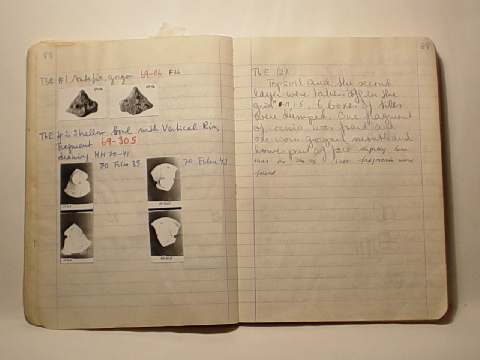 68
The #1 Antefix, gorgon 69-116 F26
The #2 Shallow Bowl with Vertical Rim,
fragment 69-305
drawing HH 70-41
70 Film 35 70 Film 43
69
The (2)
Topsoil and the second
layer were taken off in the
grid 6 boxes of tiles
were dumped. One fragment
of cornice was found and
one worn gorgon mouth and
lower part of face slightly less
fragments were
found